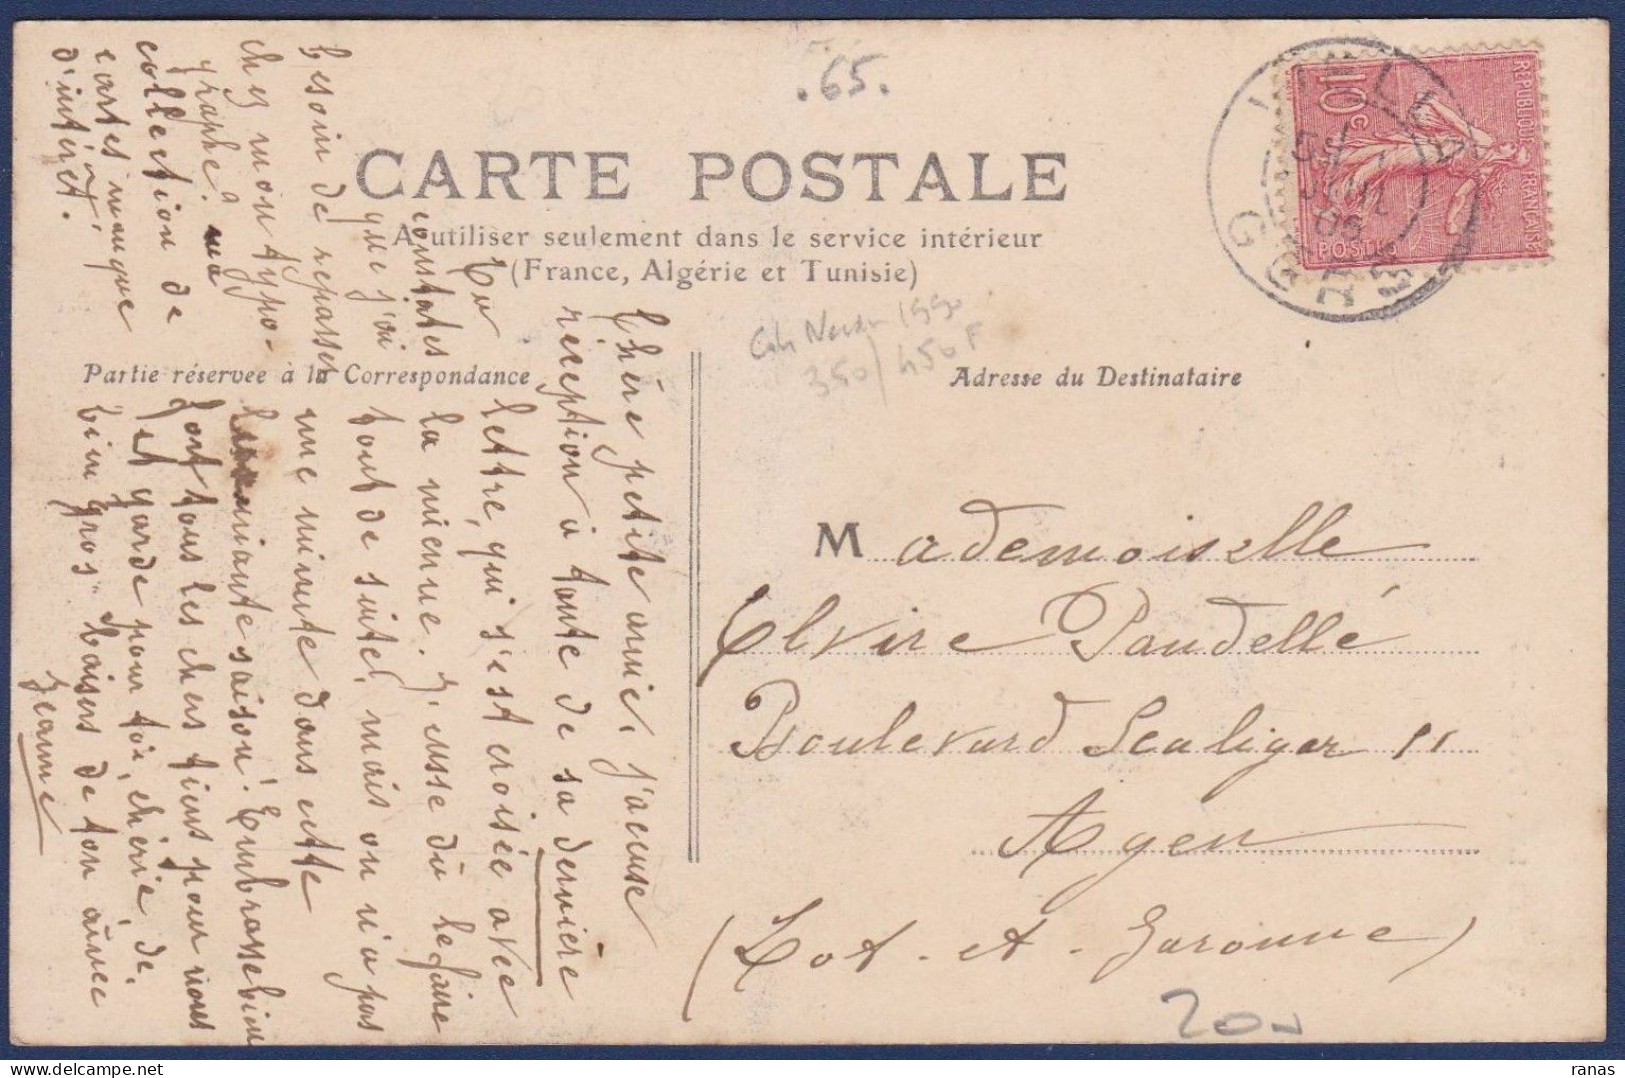 .65.
CARTE POSTALE
A utiliser seulement dans le service intérieur
(France, Algérie et Tunisie)
Partie réservée à la Correspondance
Adresse du Destinataire
350/450 F
RÉPUBLIQUE FRANÇAISE
10 c
POSTES
Mademoiselle
Elvire Paudellé
Boulevard Scaliger 11
Agen
(Lot-et-Garonne)
Chère petite amie, j'accuse
réception à toute de sa dernière
lettre, qui s'est croisée avec
la mienne. J'eusse dû le faire
tout de suite, mais on n'a pas
une minute dans cette
saison! Embrasse bien
fort tous les chers tiens pour nous
et garde pour toi, chérie, de
bien gros baisers de ton aimée
Jeanne
Tu
constates
que j'ai
besoin de repasser
chez mon typo-
graphe? ma
collection de
cartes manque
d'intérêt.
20
ranas